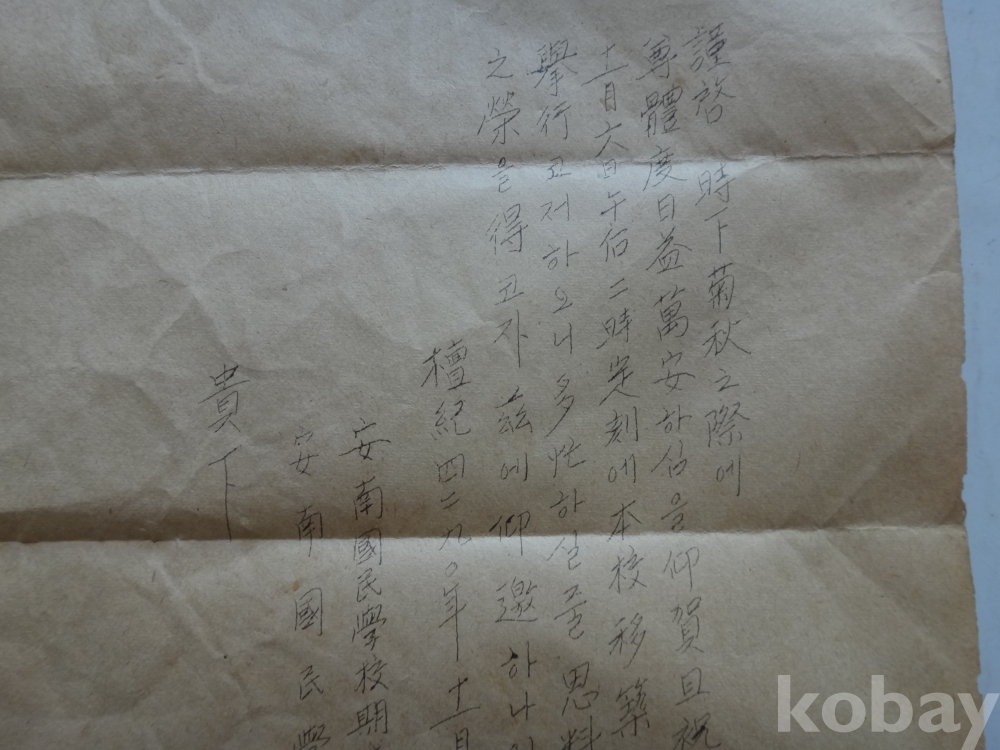 謹啓 時下菊秋之際에
尊體度日益萬安하심을仰賀且祝
十一月六日午后二時定刻에本校移築
擧行코저하오니多忙하실줄思料
之榮을得코자玆에仰邀하나이
檀紀四二九〇年十一月
安南國民學校期
安南國民學
貴下
kobay